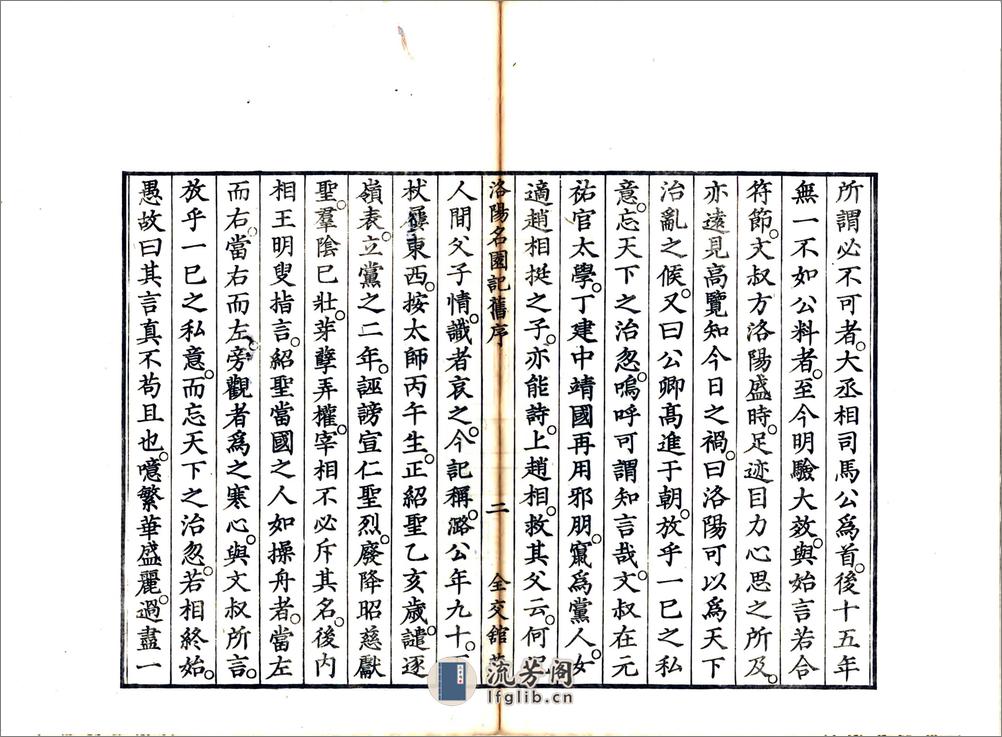 所謂必不可者。大丞相司馬公爲首。後十五年
無一不如公料者。至今明驗大效。與始言若合
符節。文叔方洛陽盛時。足迹目力心思之所及。
亦遠見高覽知今日之禍。曰洛陽可以爲天下
治亂之候。又曰公卿高進于朝。放乎一已之私
意。忘天下之治忽。嗚呼可謂知言哉。文叔在元
祐官太學。丁建中靖國再用邪朋。竄爲黨人。女
適趙相挺之子。亦能詩。上趙相。救其父云。何
洛陽名園記舊序
二
全交舘
人間父子情。識者哀之。今記稱。潞公年九十。
杖屨東西。按太師丙午生。正紹聖乙亥歲。譴逐
嶺表。立黨之二年。誣謗宣仁聖烈。廢降昭慈獻
聖。羣陰已壯。芽孽弄權。宰相不必斥其名。後內
相王明叟指言。紹聖當國之人如操舟者。當左
而右。當右而左。旁觀者爲之寒心。與文叔所言。
放乎一已之私意。而忘天下之治忽。若相終始。
愚故曰其言真不苟且也。噫繁華盛麗。過盡一
流芳阁
lfglib.cn